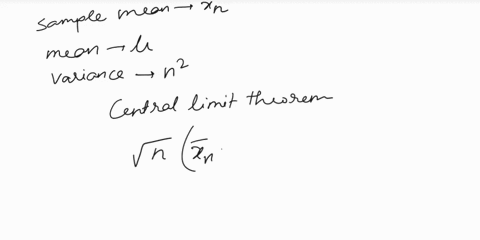 Sample mean → xn
mean → μ
variance → n²
Central limit theorem
√n (x̄n